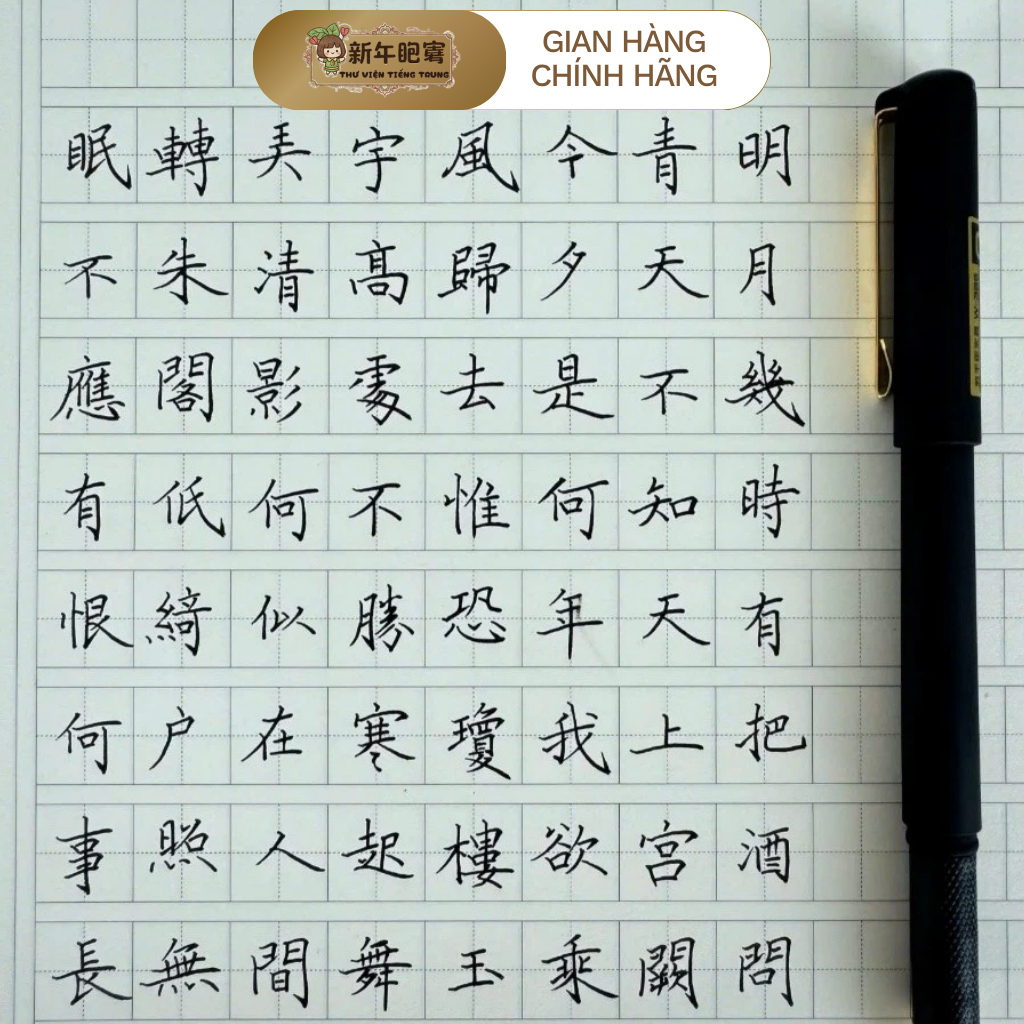 GIAN HÀNG
CHÍNH HÃNG
THƯ VIỆN TIẾNG TRUNG
明月幾時有把酒問
青天不知天上宫闕
今夕是何年我欲乘
風歸去惟恐瓊樓玉
宇髙處不勝寒起舞
弄清影何似在人間
轉朱閣低綺户照無
眠不應有恨何事長